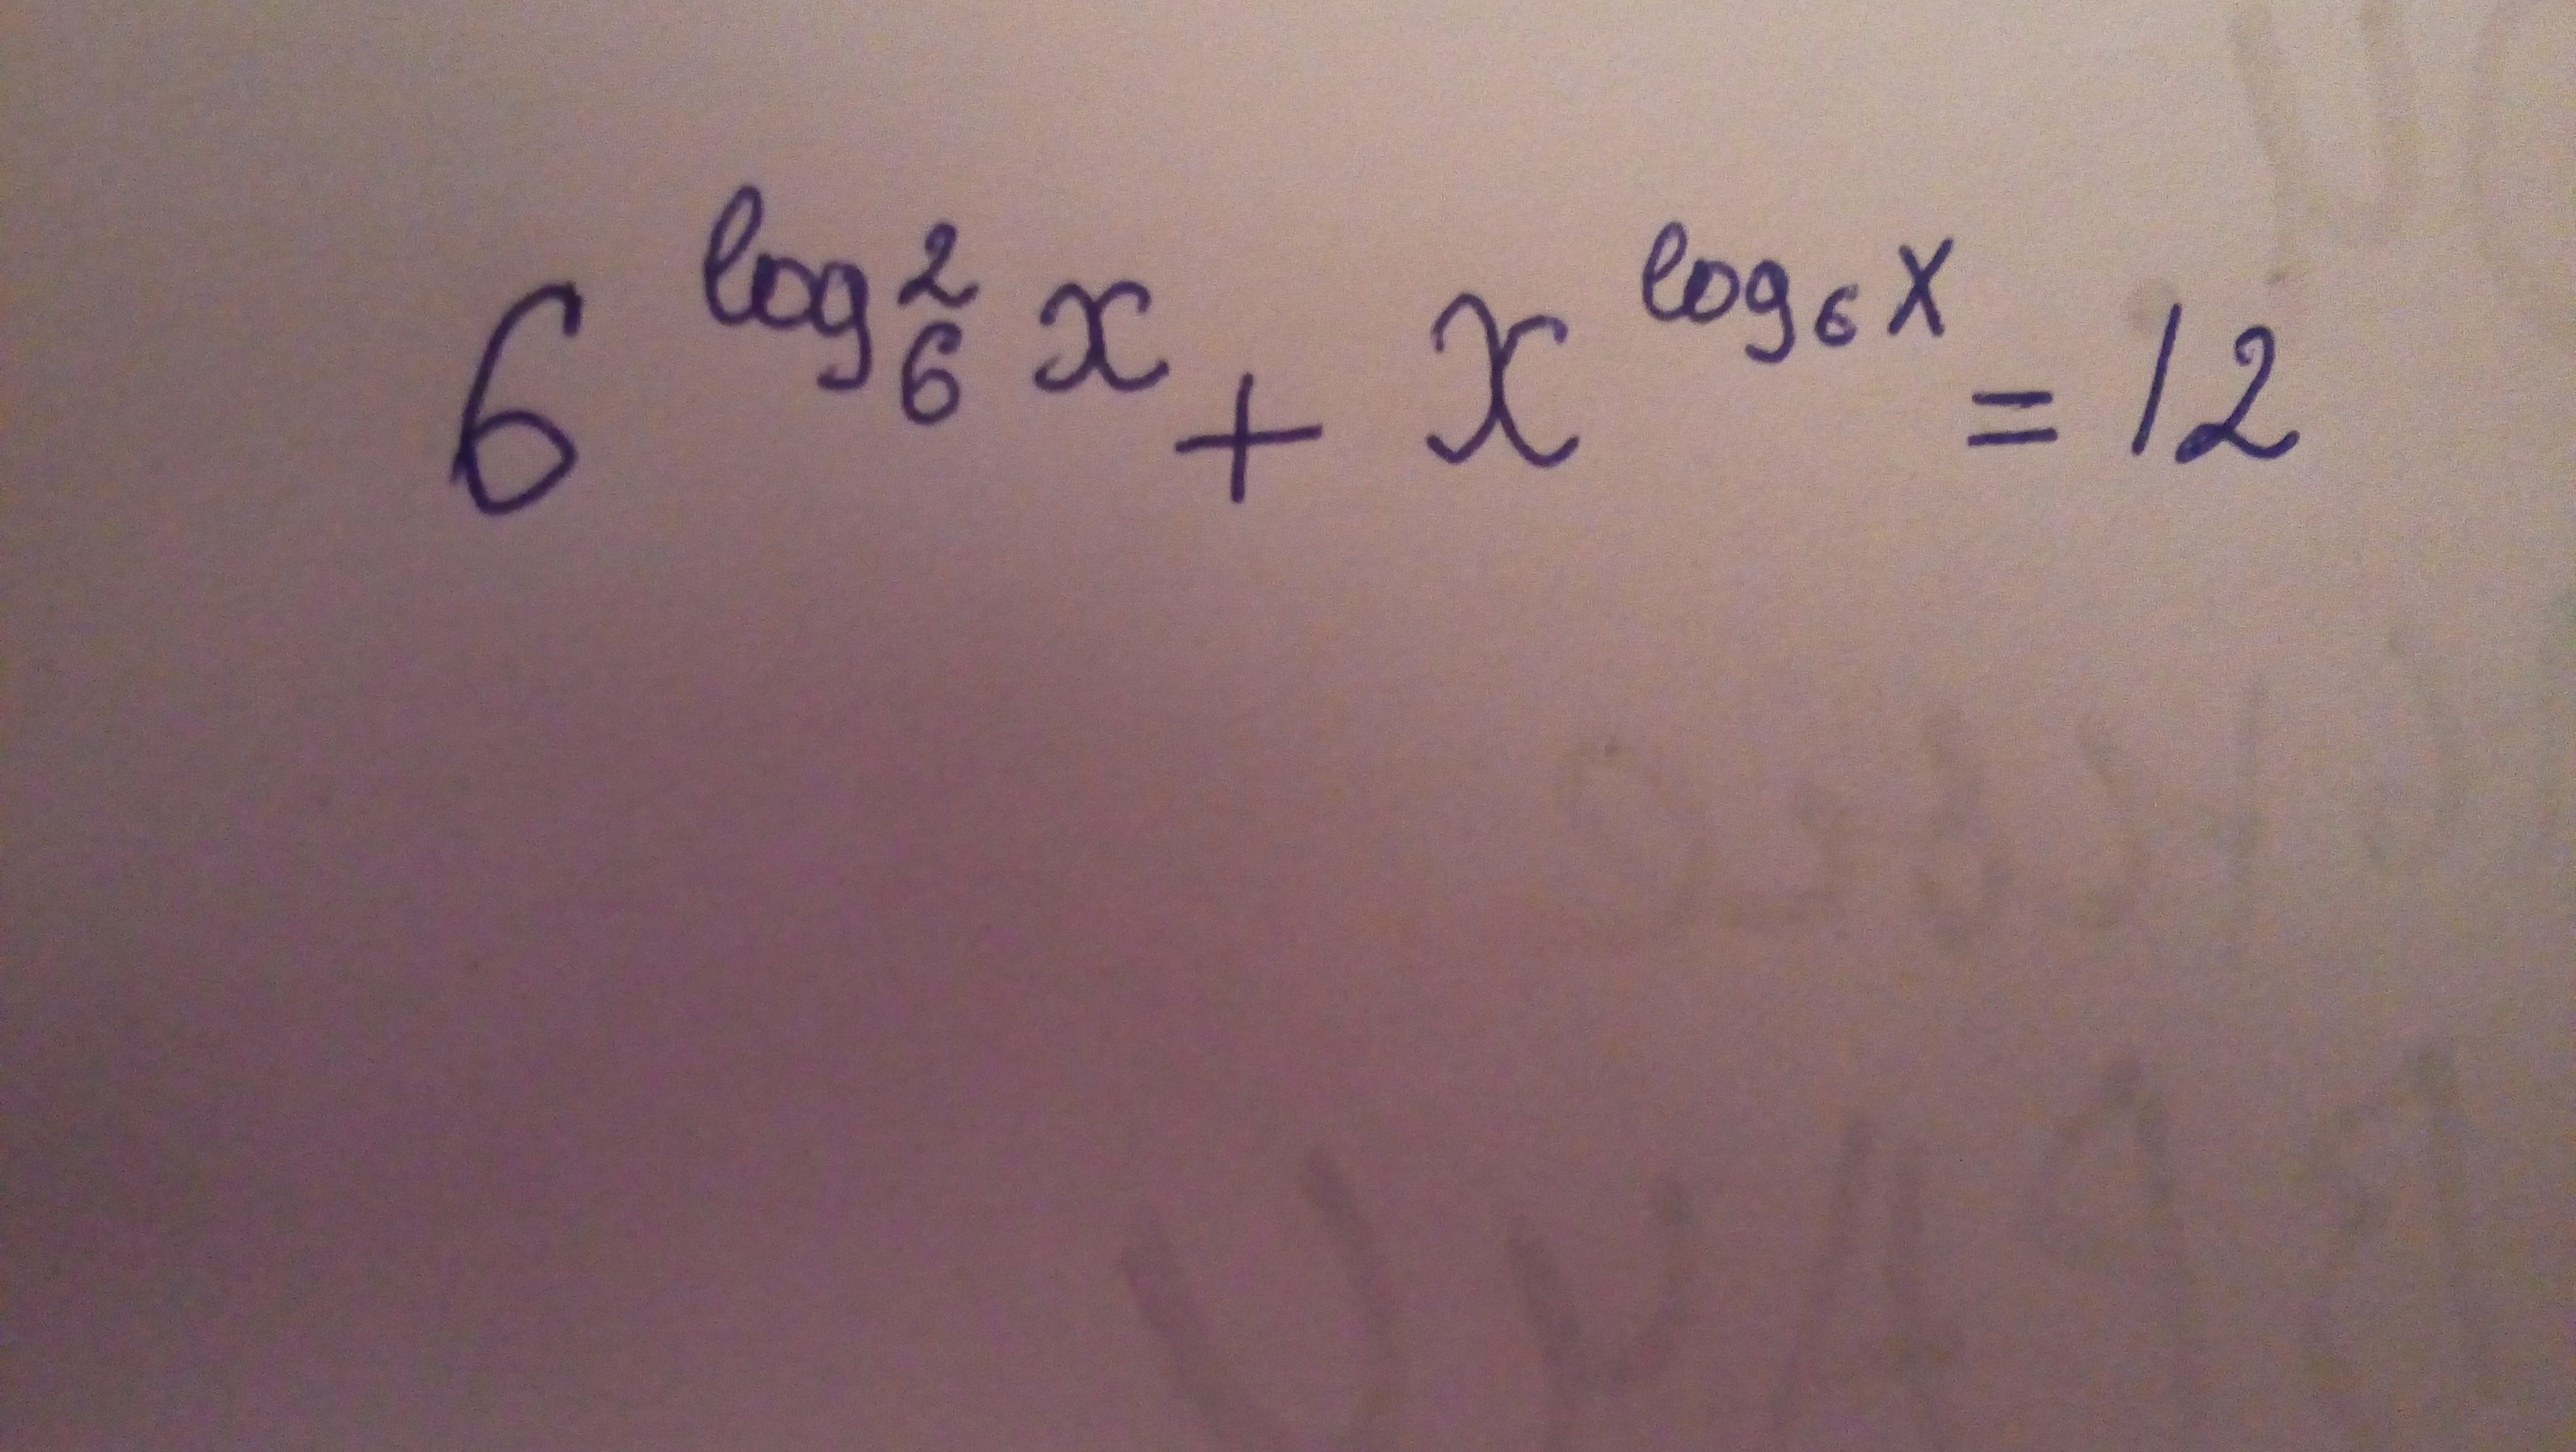 6^{log_6^2 x} + x^{log_6 x} = 12